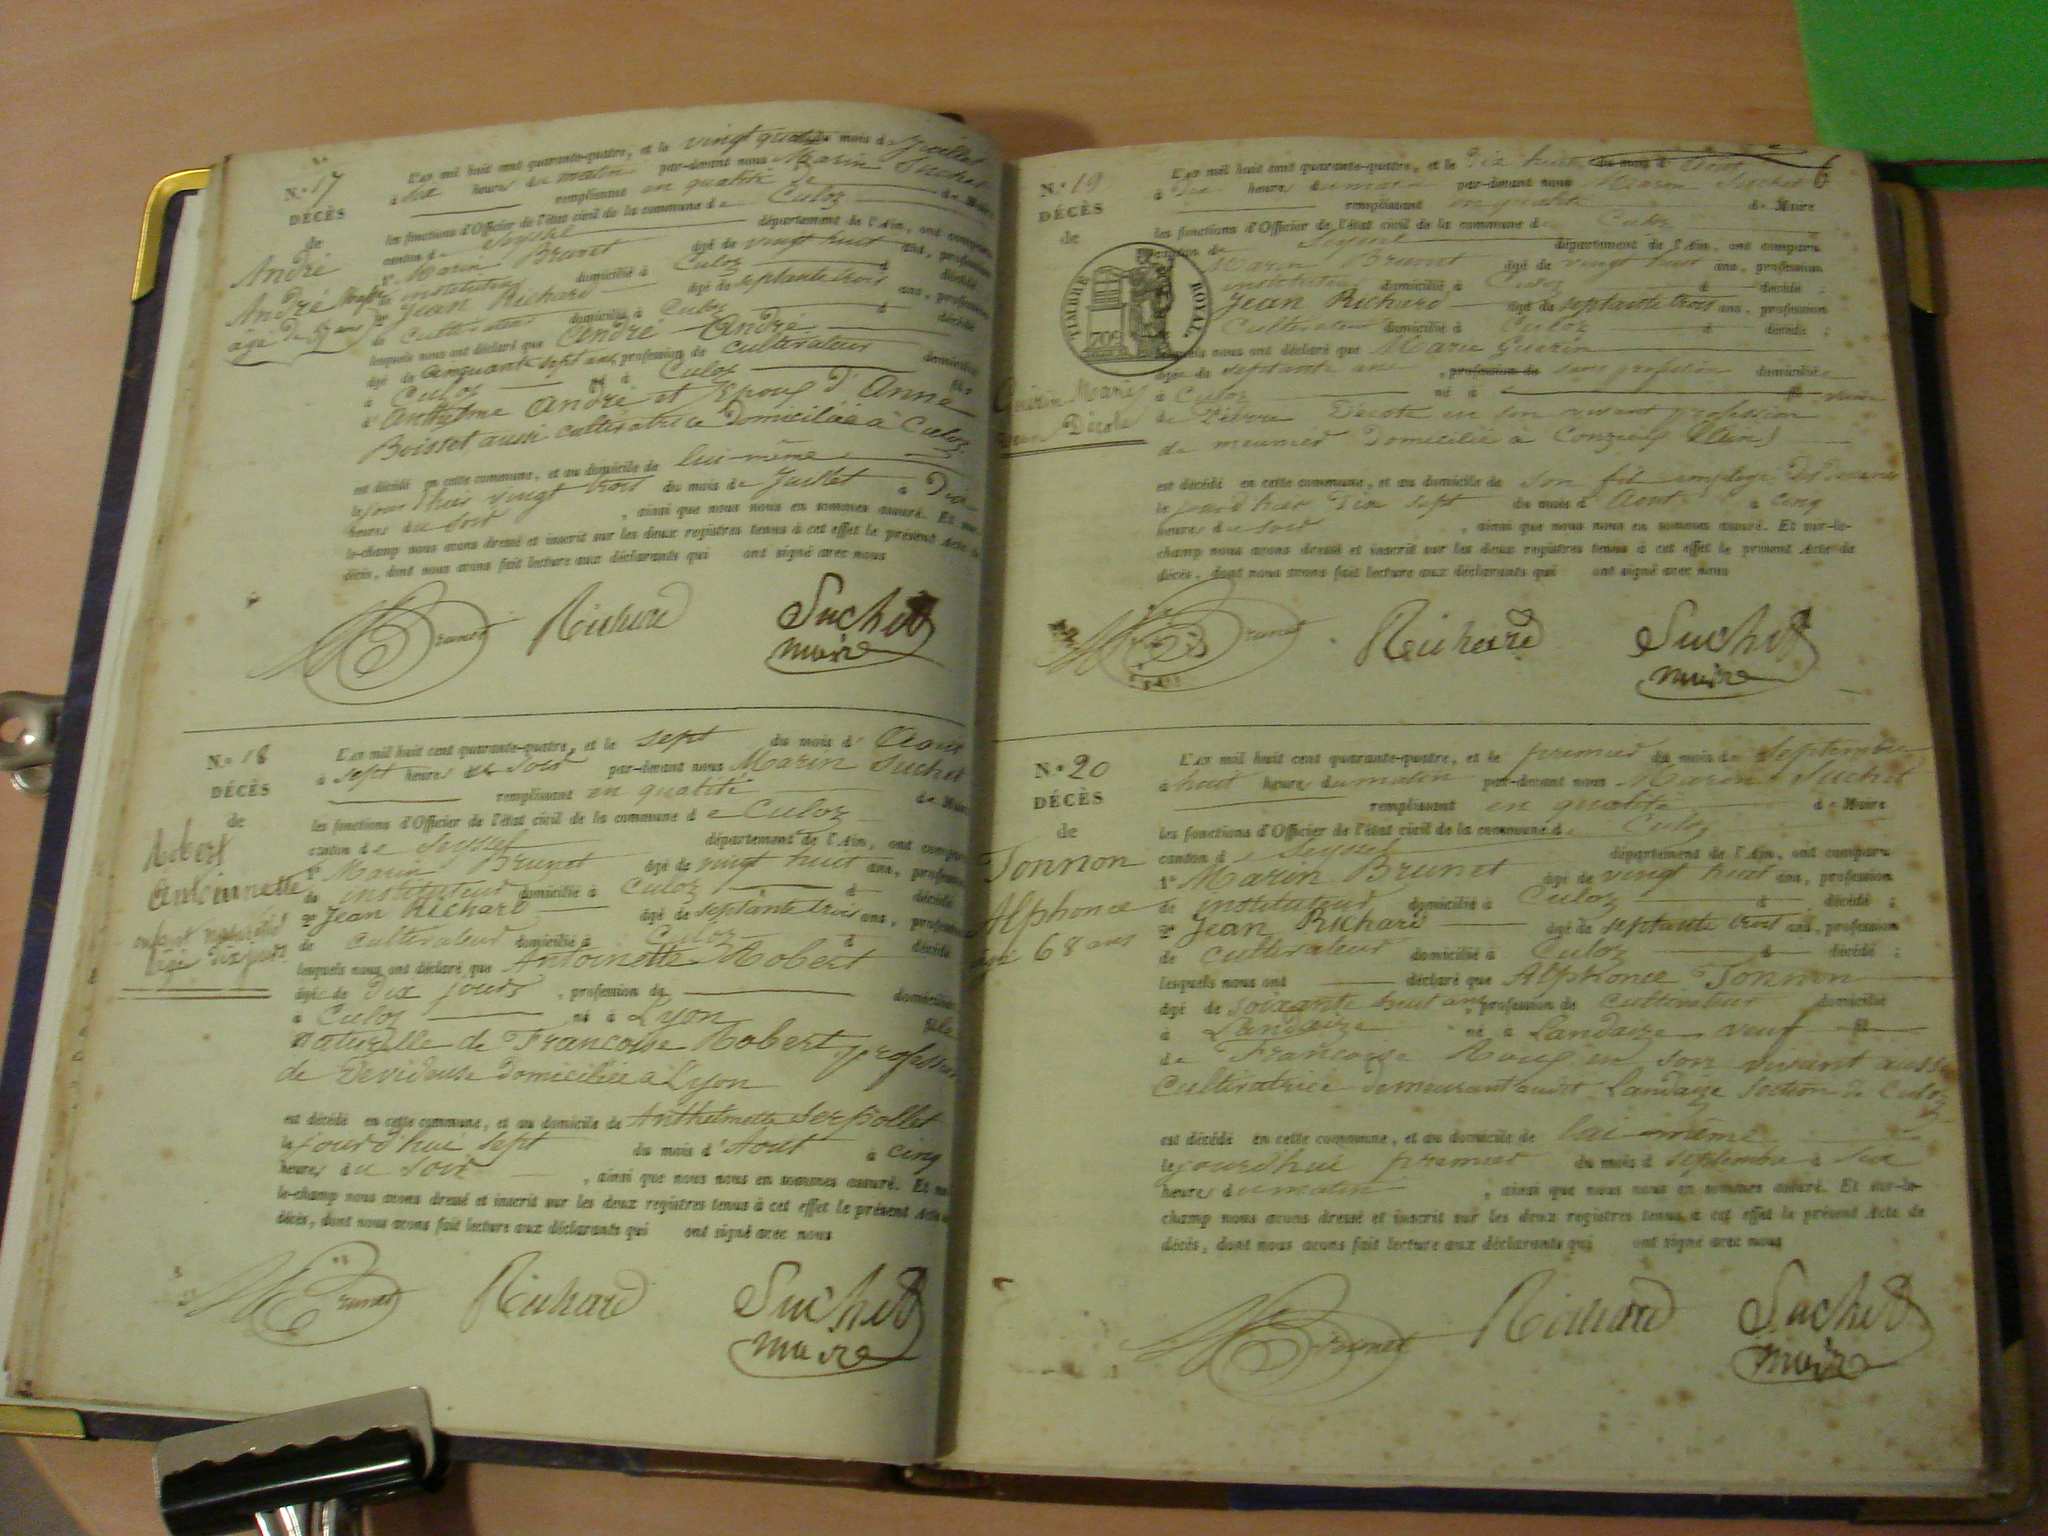 N.° 17
DÉCÈS
de
André
André
âgé de 57 ans
L'an mil huit cent quarante-quatre, et le vingt quatre du mois de Juillet
à six heures du matin par-devant nous Marin Suchet
remplissant en qualité de de Maire
les fonctions d'Officier de l'état civil de la commune de Culoz
canton de Seyssel département de l'Ain, ont comparu
1° Marin Brunet âgé de vingt huit ans, profession
de instituteur domicilié à Culoz d décédé
2° Jean Richard âgé de septante trois ans, profession
de Cultivateur domicilié à Culoz d décédé
lesquels nous ont déclaré que André André
âgé de Cinquante sept ans, profession de cultivateur domicilié
à Culoz né à Culoz fils
d'Anthelme André et Epoux d'Anne
Boisset aussi cultivatrice Domiciliée à Culoz
est décédé en cette commune, et au domicile de lui-même
le jour d'hier vingt trois du mois de Juillet à Dix
heures du soir , ainsi que nous nous en sommes assuré. Et sur-
le-champ nous avons dressé et inscrit sur les deux registres tenus à cet effet le présent Acte de
décès, dont nous avons fait lecture aux déclarants qui ont signé avec nous
Brunet Richard Suchet
maire
N.° 18
DÉCÈS
de
Robert
Antoinette
enfant naturelle
âgé dix jours
L'an mil huit cent quarante-quatre, et le sept du mois d'Aout
à sept heures du soir par-devant nous Marin Suchet
remplissant en qualité de Maire
les fonctions d'Officier de l'état civil de la commune de Culoz
canton de Seyssel département de l'Ain, ont comparu
1° Marin Brunet âgé de vingt huit ans, profession
de instituteur domicilié à Culoz d décédé
2° Jean Richard âgé de septante trois ans, profession
de cultivateur domicilié à Culoz d décédé
lesquels nous ont déclaré que Antoinette Robert
âgée de Dix jours , profession de domiciliée
à Culoz né à Lyon fille
naturelle de Francoise Robert, profession
de Devideuse domiciliée à Lyon
est décédé en cette commune, et au domicile de Anthelmette Serpollet
le jourd'hui sept du mois d'Aout à cinq
heures du soir , ainsi que nous nous en sommes assuré. Et sur-
le-champ nous avons dressé et inscrit sur les deux registres tenus à cet effet le présent Acte de
décès, dont nous avons fait lecture aux déclarants qui ont signé avec nous
Brunet Richard Suchet
maire
6
N.° 19
DÉCÈS
de
TIMBRE ROYAL.
709
Guerin Marie
L'an mil huit cent quarante-quatre, et le Dix huit du mois d'Aout
à Dix heures du matin par-devant nous Marin Suchet
remplissant en qualité de Maire
les fonctions d'Officier de l'état civil de la commune de Culoz
canton de Seyssel département de l'Ain, ont comparu
Marin Brunet âgé de vingt huit ans, profession
instituteur domicilié à Culoz d décédé ;
Jean Richard âgé de septante trois ans, profession
Cultivateur domicilié à Culoz d décédé ;
lesquels nous ont déclaré que Marie Guerin
âgée de septante ans , profession de sans profession domiciliée
à Culoz né à veuve
de Pierre Decote en son vivant profession
de meunier Domicilié à Conzieu (Ain)
est décédé en cette commune, et au domicile de son fils employé Des Douanes
le jour d'hier Dix sept du mois d'Aout à cinq
heures du soir , ainsi que nous nous en sommes assuré. Et sur-le-
champ nous avons dressé et inscrit sur les deux registres tenus à cet effet le présent Acte de
décès, dont nous avons fait lecture aux déclarants qui ont signé avec nous
Brunet Richard Suchet
maire
N.° 20
DÉCÈS
de
Tonnon
Alphonce
âgé 68 ans
L'an mil huit cent quarante-quatre, et le premier du mois de Septembre
à huit heures du matin par-devant nous Marin Suchet
remplissant en qualité de Maire
les fonctions d'Officier de l'état civil de la commune de Culoz
canton de Seyssel département de l'Ain, ont comparu
1° Marin Brunet âgé de vingt huit ans, profession
de instituteur domicilié à Culoz d décédé ;
2° Jean Richard âgé de septante trois ans, profession
de cultivateur domicilié à Culoz d décédé ;
lesquels nous ont déclaré que Alphonce Tonnon
âgé de soixante huit ans, profession de cultivateur domicilié
à Landaize né à Landaize veuf
de Françoise Roux en son vivant aussi
Cultivatrice demeurant audit Landaize section de Culoz
est décédé en cette commune, et au domicile de lui même
le jourd'hui premier du mois de septembre à six
heures du matin , ainsi que nous nous en sommes assuré. Et sur-le-
champ nous avons dressé et inscrit sur les deux registres tenus à cet effet le présent Acte de
décès, dont nous avons fait lecture aux déclarants qui ont signé avec nous
Brunet Richard Suchet
maire